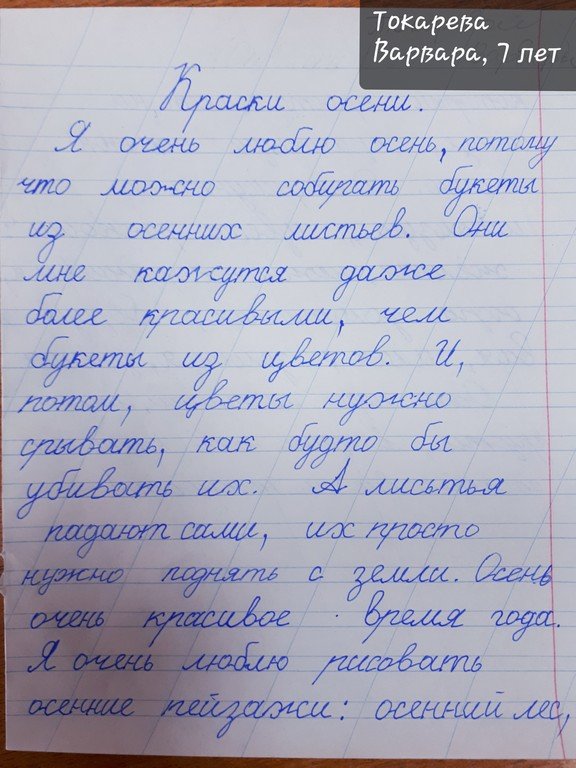 Токарева
Варвара, 7 лет
Краски осени.
Я очень люблю осень, потому
что можно собирать букеты
из осенних листьев. Они
мне кажутся даже
более красивыми, чем
букеты из цветов. И,
потом, цветы нужно
срывать, как будто бы
убивать их. А лисьтья
падают сами, их просто
нужно поднять с земли. Осень
очень красивое время года.
Я очень люблю рисовать
осенние пейзажи: осенний лес,